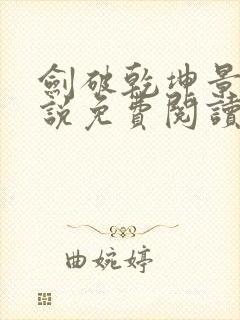 劍破乾坤景
說免費閱讀
曲婉婷